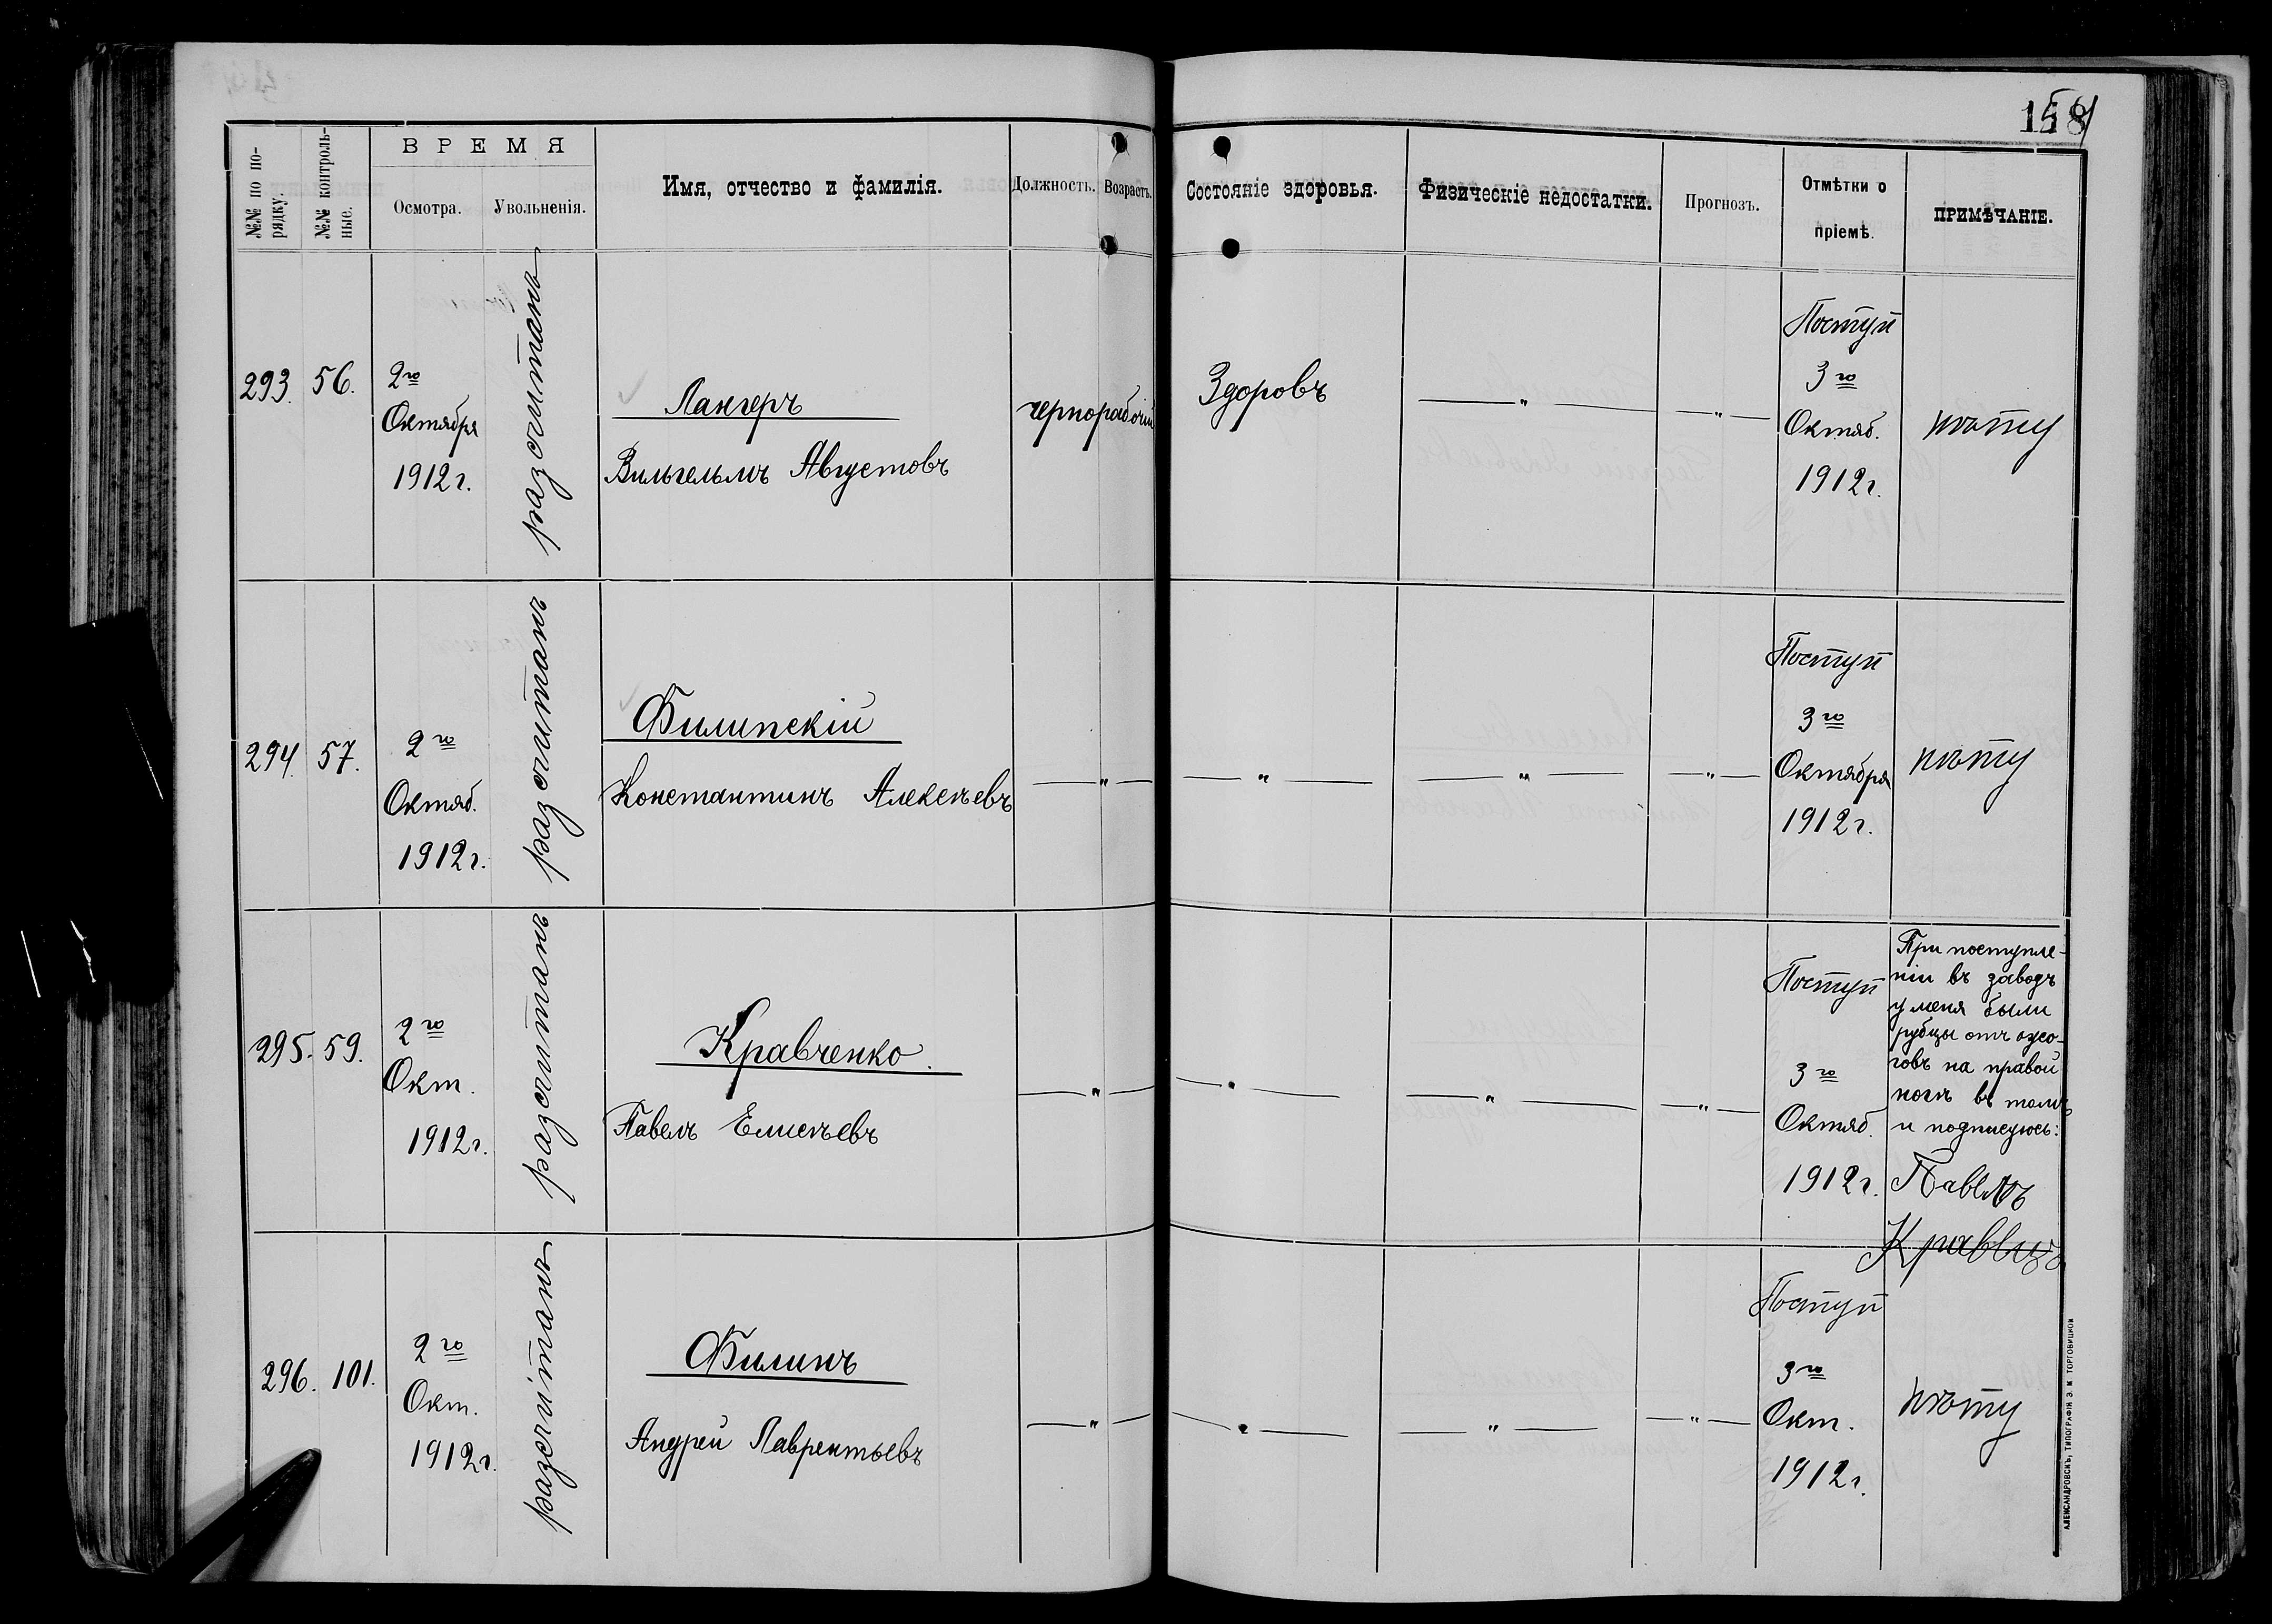 158
№№ по по-
рядку.
№№ контроль-
ные.
ВРЕМЯ
Осмотра.
Увольненія.
Имя, отчество и фамилія.
Должность.
Возрастъ.
Состояніе здоровья.
Физическіе недостатки.
Прогнозъ.
Отмѣтки о
пріемѣ.
ПРИМѢЧАНІЕ.
293.
56.
2го
Октября
1912г.
разсчитанъ
Лангеръ
Вильгельмъ Августовъ
чернорабочій
Здоровъ
— " —
— " —
Поступ
3го
Октяб.
1912г.
294.
57.
2го
Октяб.
1912г.
разсчитанъ
Филипскій
Константинъ Алексѣевъ
— " —
— " —
— " —
— " —
Поступ
3го
Октября
1912г.
295.
59.
2го
Окт.
1912г.
разсчитанъ
Кравченко.
Павелъ Елисѣевъ
— " —
— " —
— " —
— " —
Поступ
3го
Октяб.
1912г.
При поступле-
ніи въ заводъ
у меня были
рубцы отъ ожо-
говъ на правой
ногѣ въ томъ
и подписуюсь:
Павелъ
296.
101.
2го
Окт.
1912г.
разсчитанъ
Филинъ
Андрей Лаврентьевъ
— " —
— " —
— " —
— " —
Поступ
3го
Окт.
1912г.
АЛЕКСАНДРОВСКЪ, ТИПОГРАФІЯ Э. М. ТОРГОВИЦКОЙ